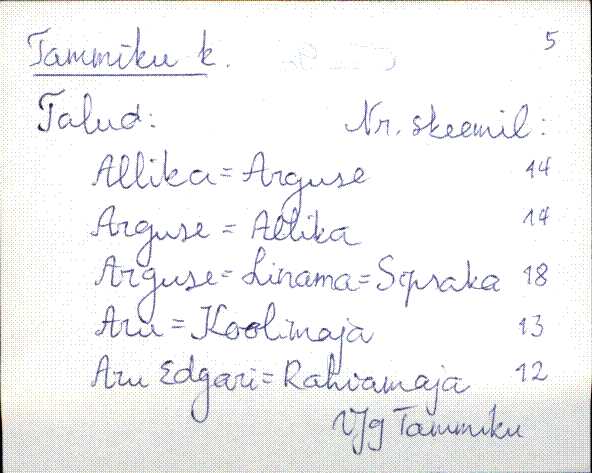 Tammiku k. 5
Talud: Nr. skeemil:
Allika = Arguse 14
Arguse = Allika 14
Arguse = Linama = Sopsaka 18
Aru = Koolimaja 13
Aru Edgari = Rahvamaja 12
VJg Tammiku